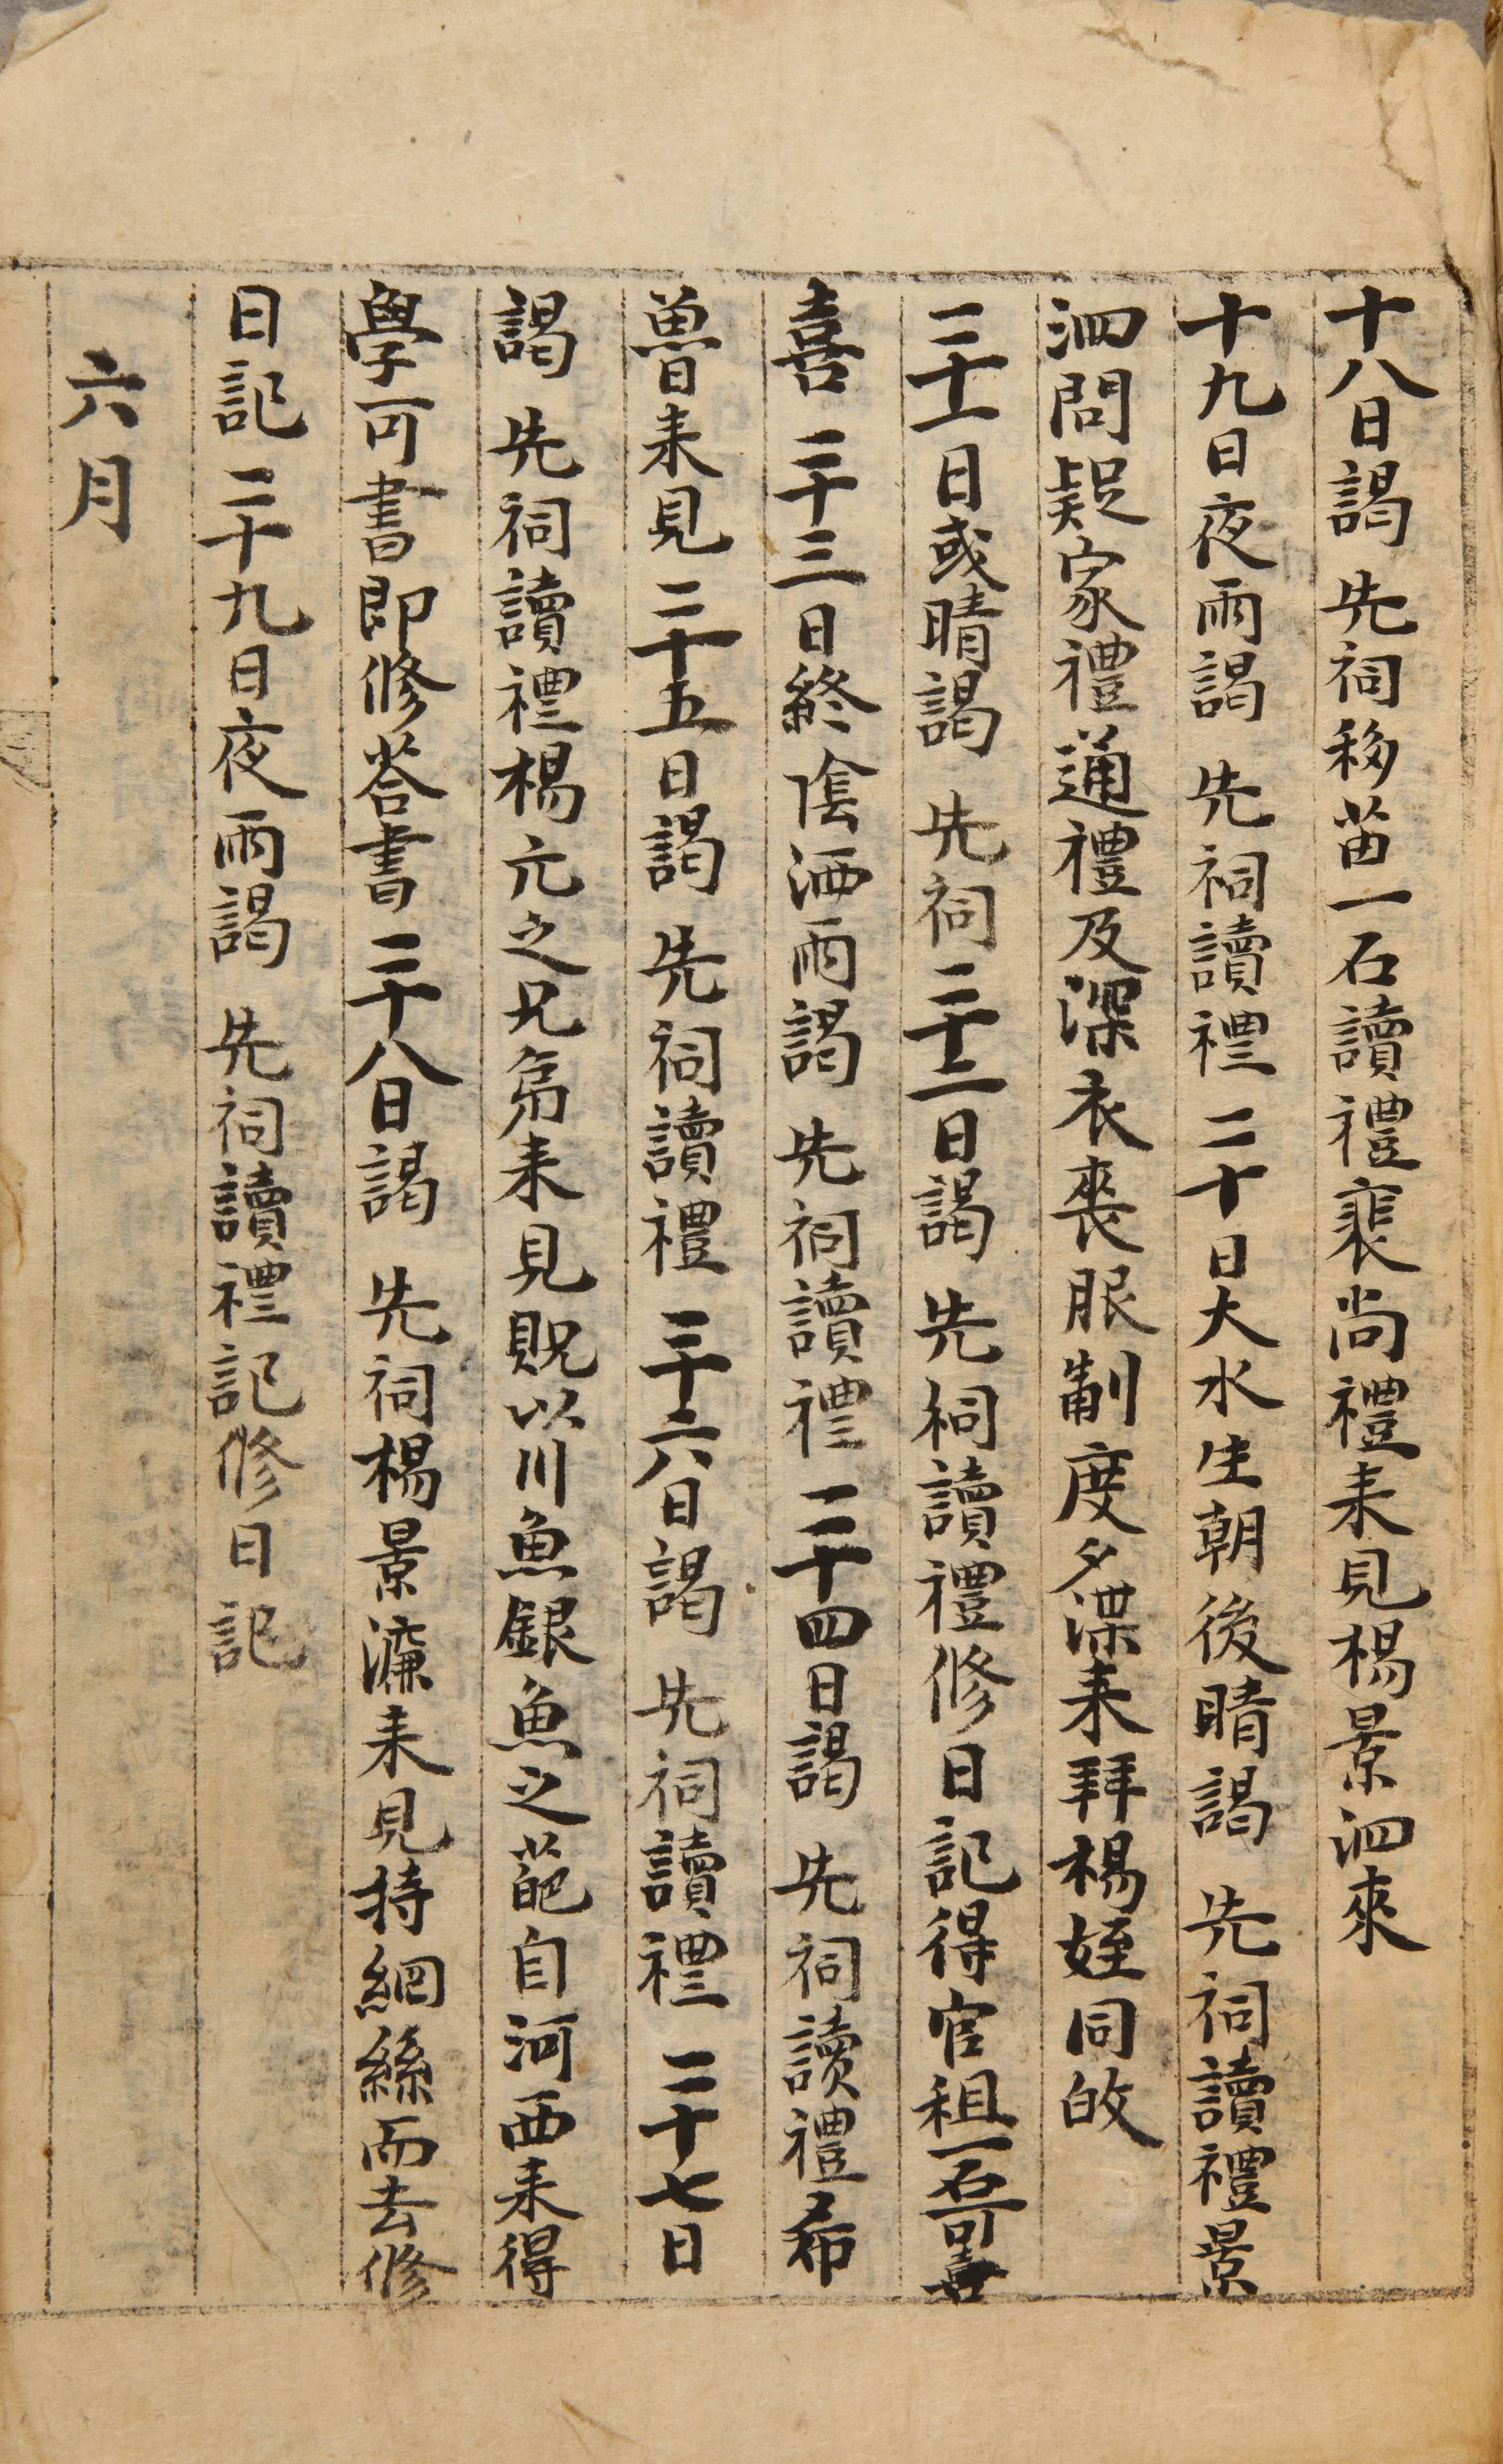 十八日謁 先祠移苗一石讀禮裵尚禮来見楊景泗來
十九日夜雨謁 先祠讀禮二十日大水生朝後晴謁 先祠讀禮景
泗問疑家禮通禮及深衣喪服制度夕渫来拜楊姪同故
二十一日或晴謁 先祠二十二日謁 先祠讀禮修日記得官租一石可喜
喜二十三日終陰洒雨謁 先祠讀禮二十四日謁 先祠讀禮希
魯来見二十五日謁 先祠讀禮二十六日謁 先祠讀禮二十七日
謁 先祠讀禮楊元之兄弟来見貺以川魚銀魚之葩自河西来得
學可書即修荅書二十八日謁 先祠楊景濂来見持網絲而去修
日記二十九日夜雨謁 先祠讀禮記修日記
六月